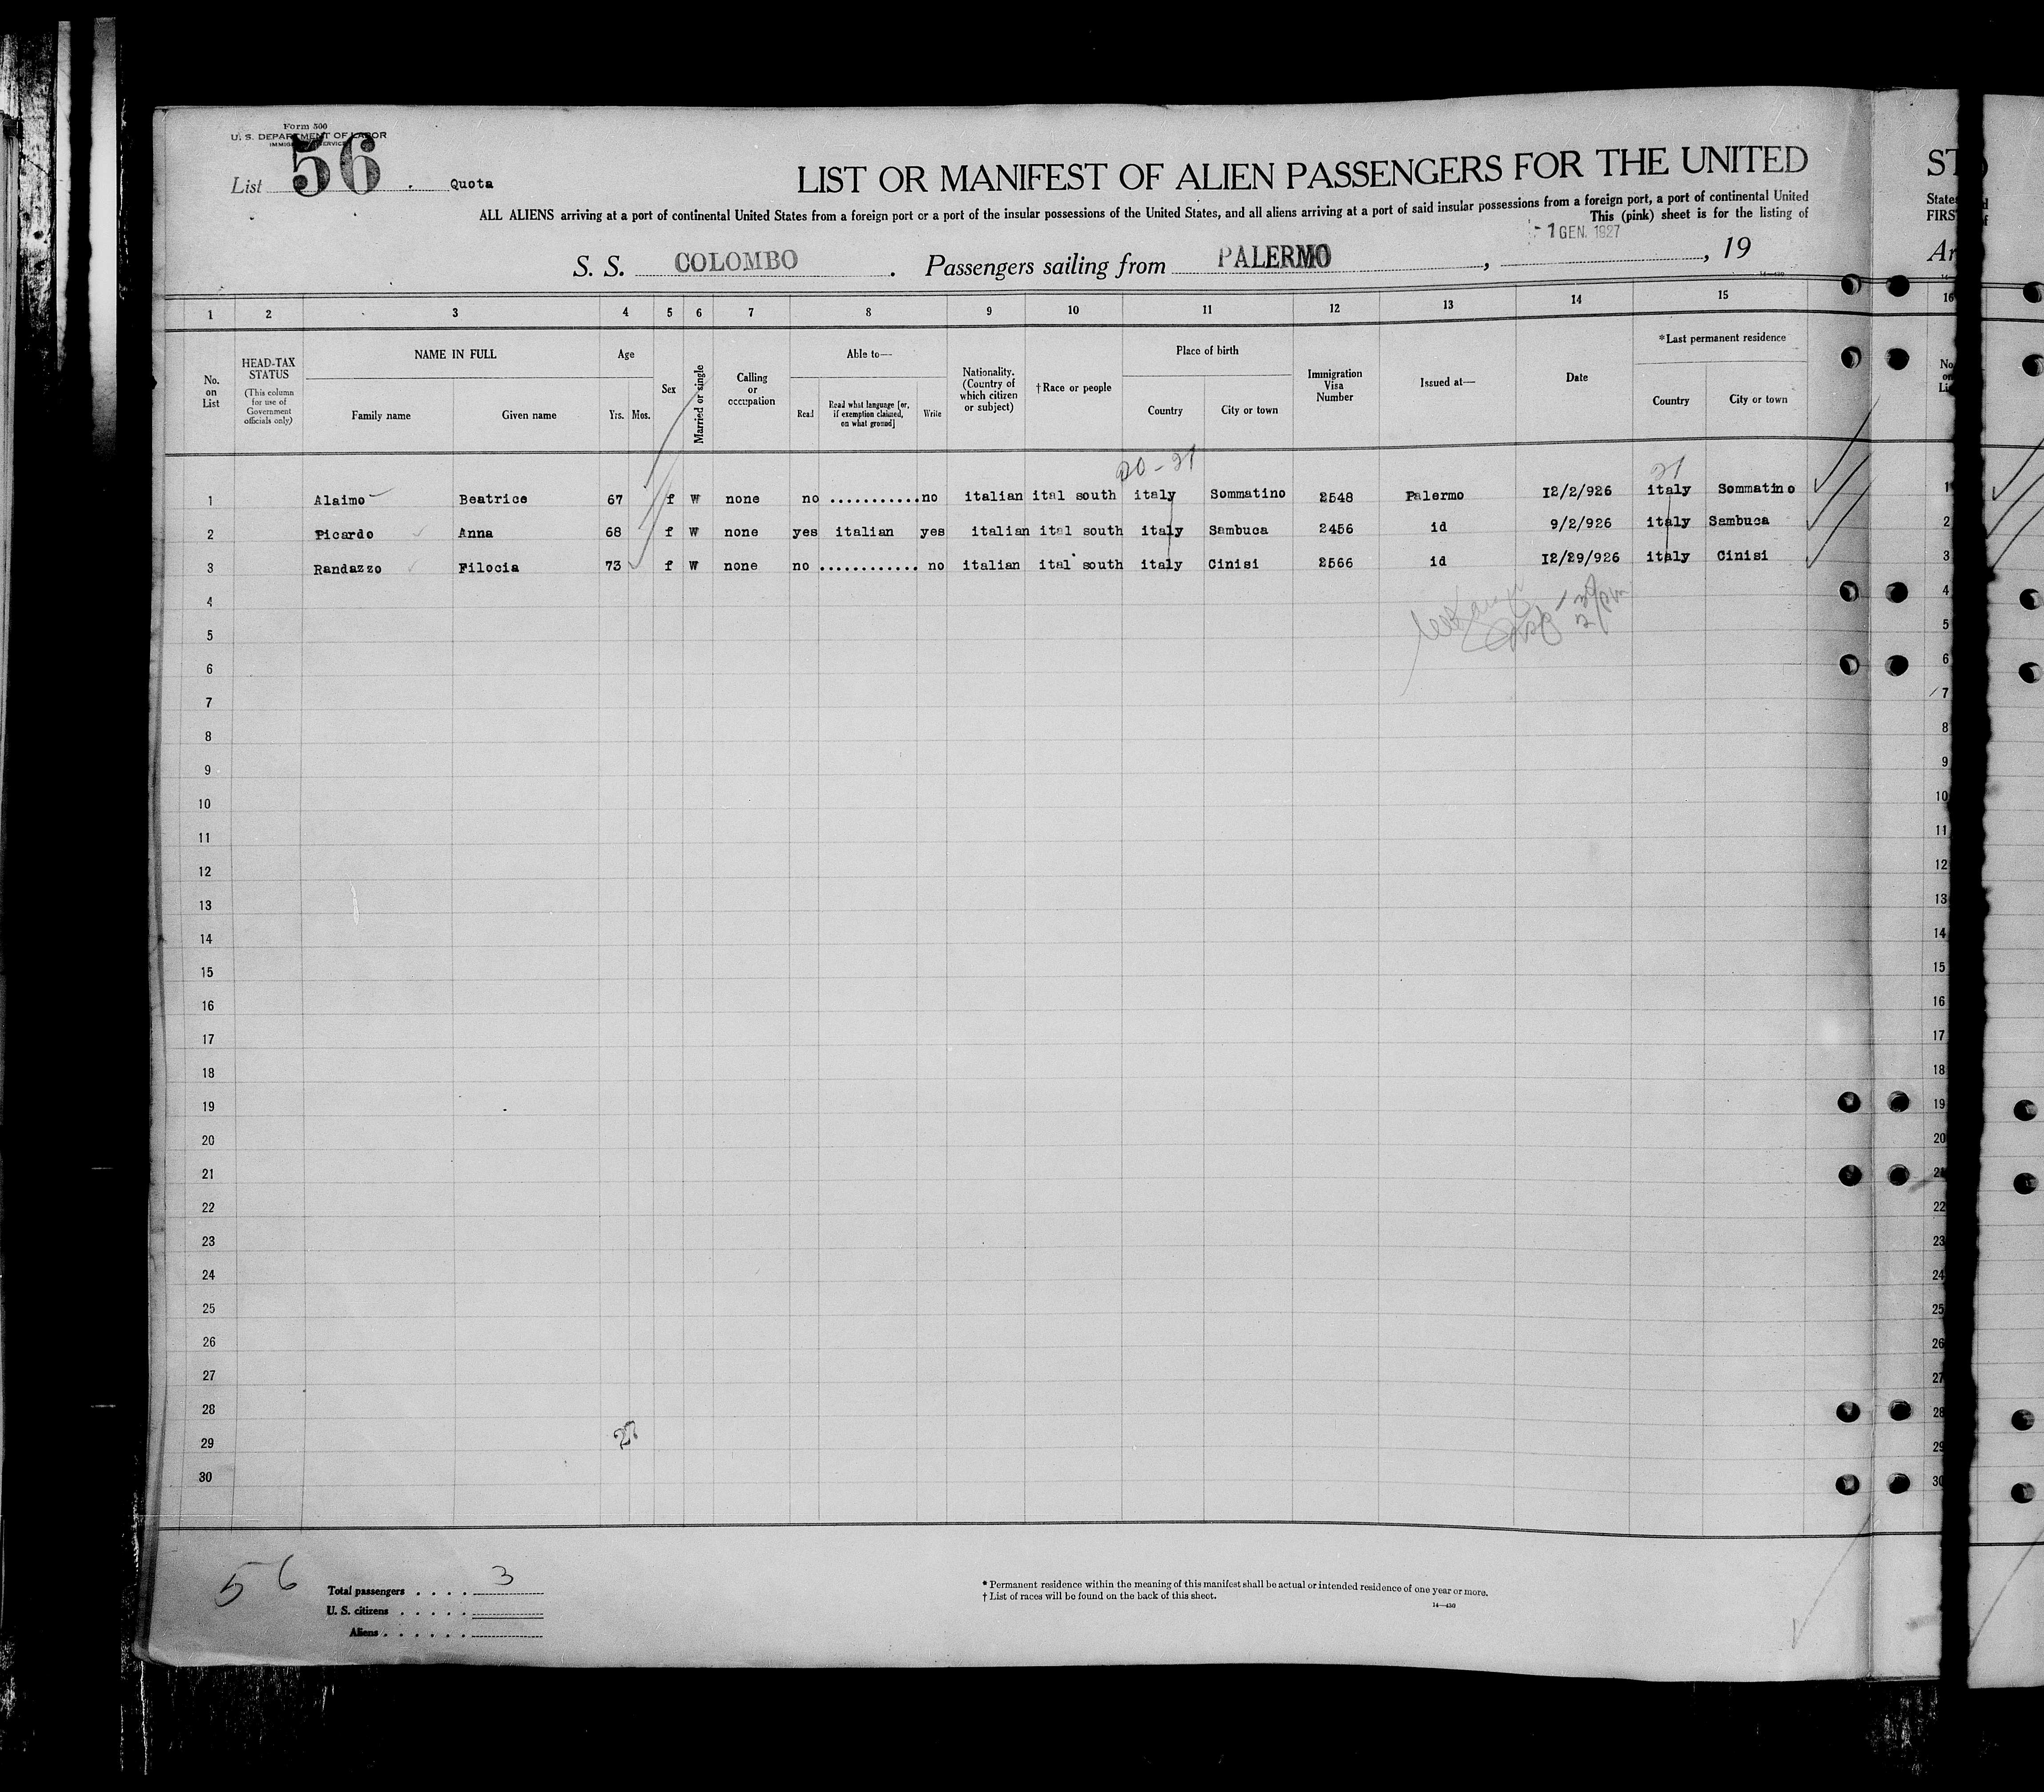 Form 500
U. S. DEPARTMENT OF LABOR
IMMIGRATION SERVICE
List 56 . Quota
LIST OR MANIFEST OF ALIEN PASSENGERS FOR THE UNITED
ALL ALIENS arriving at a port of continental United States from a foreign port or a port of the insular possessions of the United States, and all aliens arriving at a port of said insular possessions from a foreign port, a port of continental United
This (pink) sheet is for the listing of
-1 GEN. 1927
S. S. COLOMBO . Passengers sailing from PALERMO , , 19
14—430
1 2 3 4 5 6 7 8 9 10 11 12 13 14 15
No. on List
HEAD-TAX STATUS
(This column for use of Government officials only)
NAME IN FULL
Family name Given name
Age
Yrs. Mos.
Sex
Married or single
Calling or occupation
Able to—
Read
Read what language [or, if exemption claimed, on what ground]
Write
Nationality. (Country of which citizen or subject)
†Race or people
Place of birth
Country City or town
Immigration Visa Number
Issued at—
Date
*Last permanent residence
Country City or town
20-21 21
1 Alaimo Beatrice 67 f w none no ........... no italian ital south italy Sommatino 2548 Palermo 12/2/926 italy Sommatino
2 Picardo Anna 68 f w none yes italian yes italian ital south italy Sambuca 2456 id 9/2/926 italy Sambuca
3 Randazzo Filocia 73 f w none no ............ no italian ital south italy Cinisi 2566 id 12/29/926 italy Cinisi
4
5
6
7
8
9
10
11
12
13
14
15
16
17
18
19
20
21
22
23
24
25
26
27
28
29
30
56
Total passengers . . . . 3
U. S. citizens . . . . .
Aliens . . . . . .
* Permanent residence within the meaning of this manifest shall be actual or intended residence of one year or more.
† List of races will be found on the back of this sheet.
14—430
States
FIRS
16
1
2
3
4
5
6
7
8
9
10
11
12
13
14
15
16
17
18
19
20
21
22
23
24
25
26
27
28
29
30